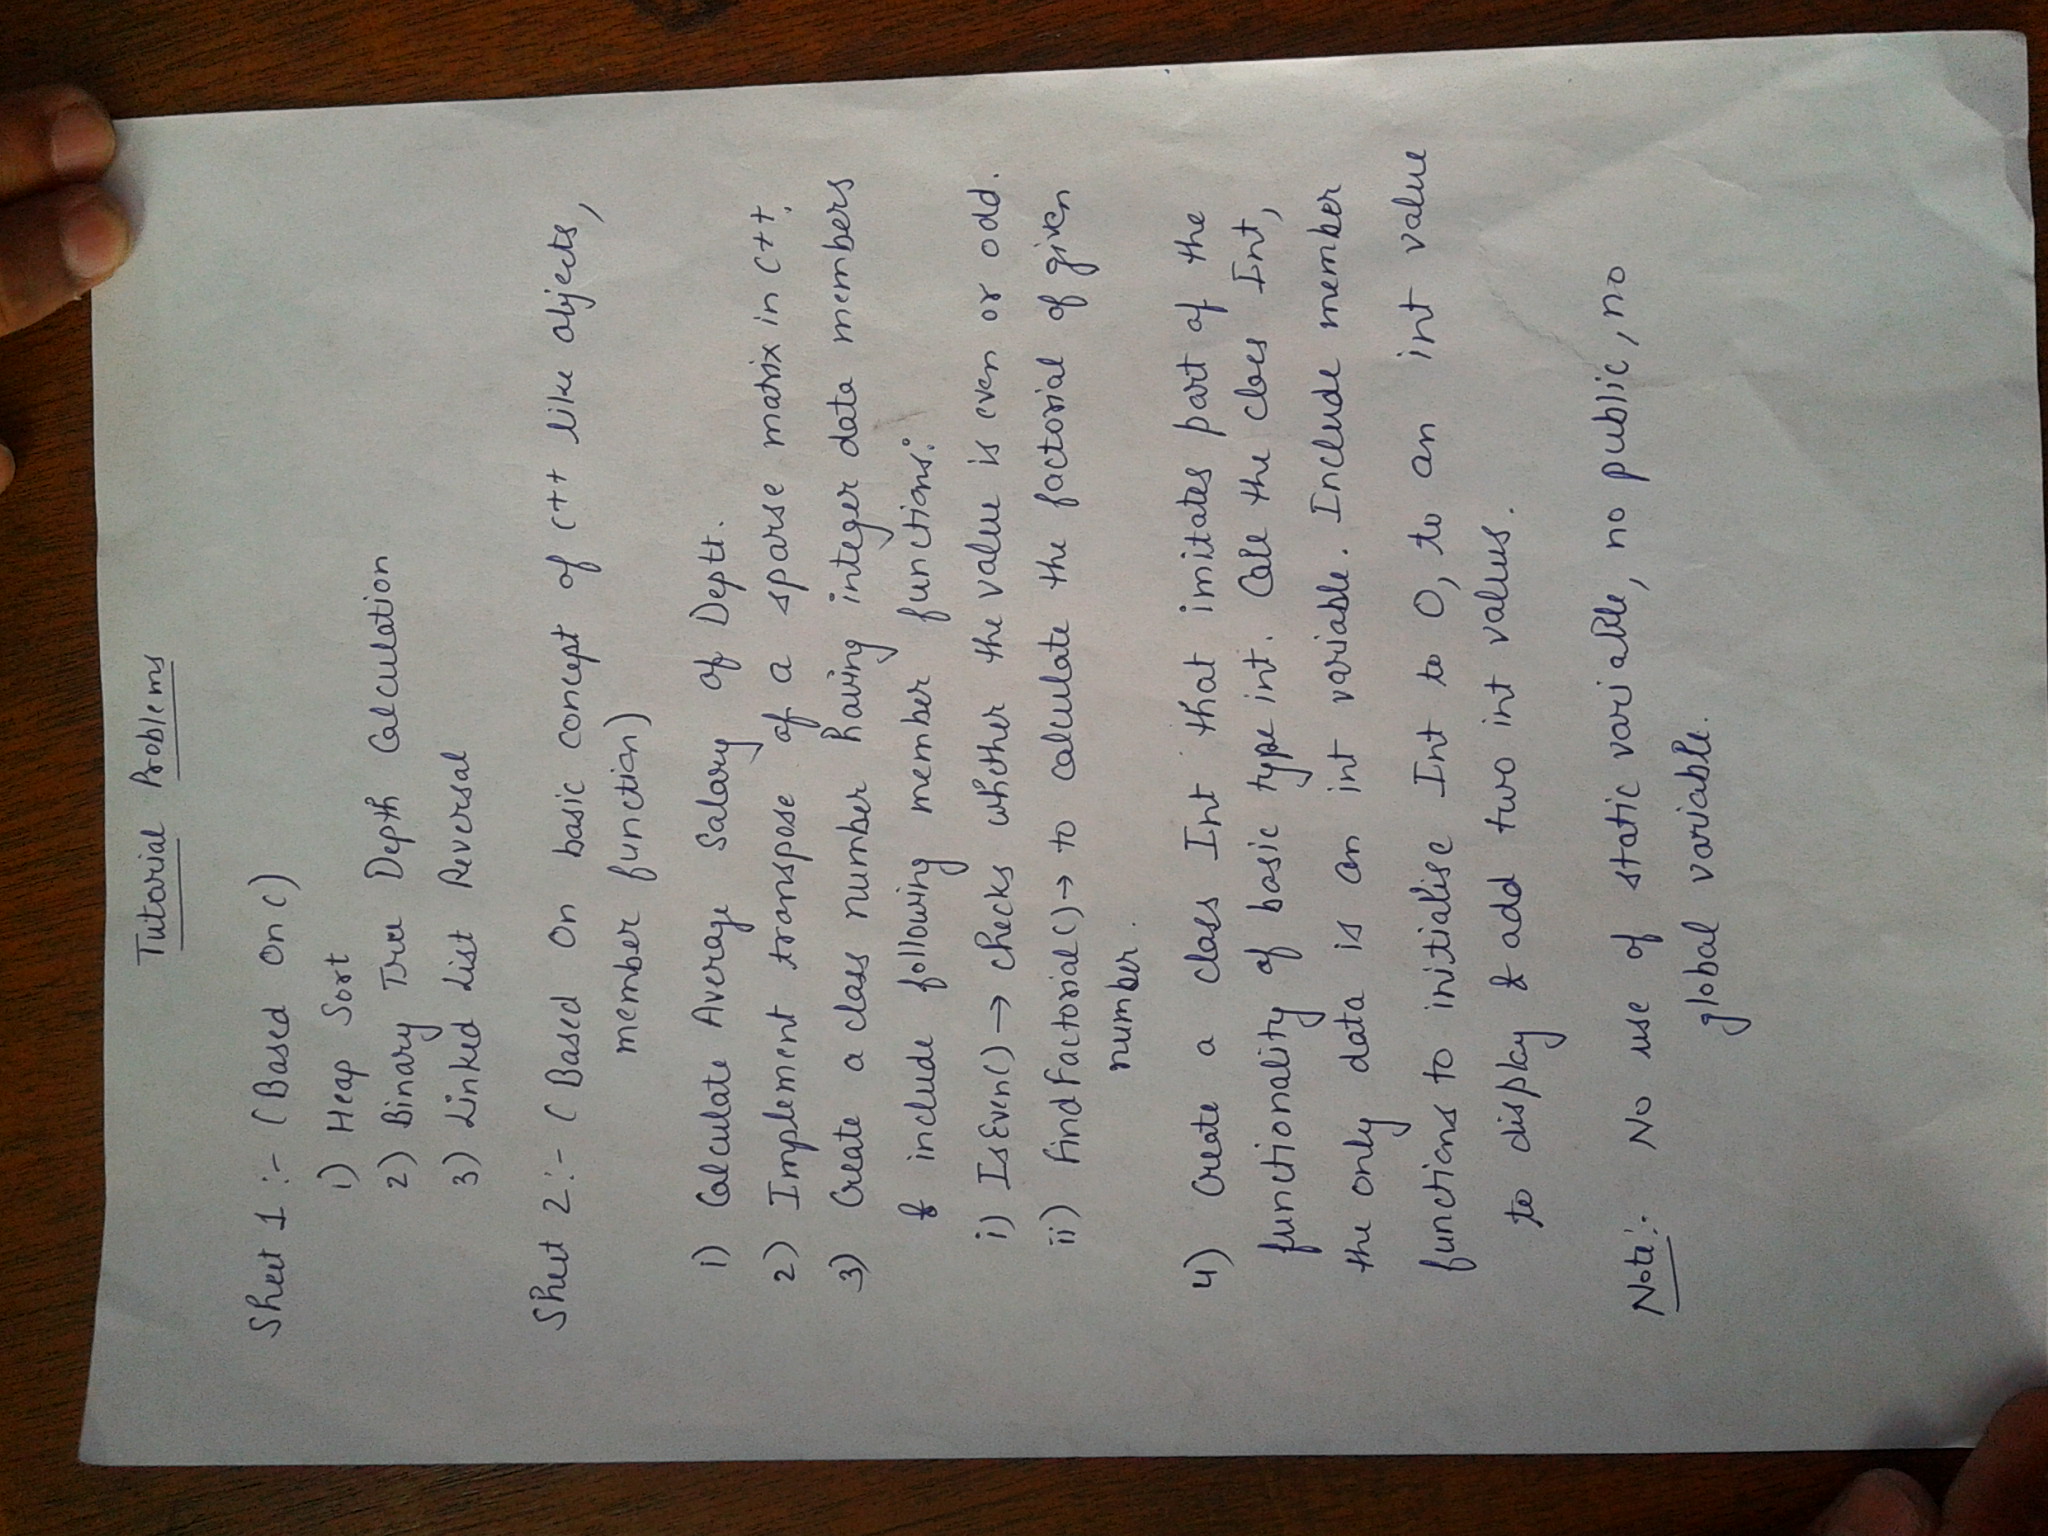 Tutorial Problems
Sheet 1 :- (Based On C)
1) Heap Sort
2) Binary Tree Depth Calculation
3) Linked List Reversal
Sheet 2:- (Based On basic concept of C++ like objects,
member function)
1) Calculate Average Salary of Deptt.
2) Implement transpose of a sparse matrix in C++.
3) Create a class number having integer data members
& include following member functions:
i) IsEven() → checks whether the value is even or odd.
ii) FindFactorial() → to calculate the factorial of given
number.
4) Create a class Int that imitates part of the
functionality of basic type int. Call the class Int,
the only data is an int variable. Include member
functions to initialise Int to 0, to an int value
to display & add two int values.
Note:- No use of static variable, no public, no
global variable.